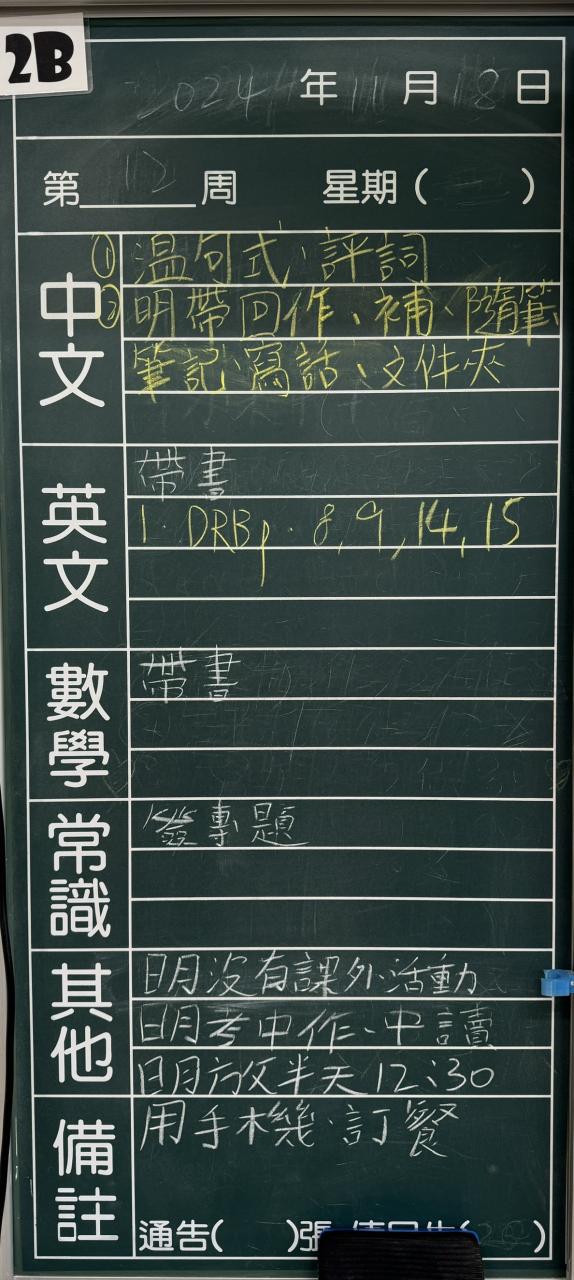 2B
2024年11月18日
第12周 星期( )
中文
① 溫句式、評詞
② 明帶回作、補、隨筆
筆記、寫話、文件夾
英文
帶書
1. DRB p. 8, 9, 14, 15
數學
帶書
常識
簽專題
其他
明沒有課外活動
明考中作、中讀
明放半天12:30
備註
用手機訂餐
通告( )張